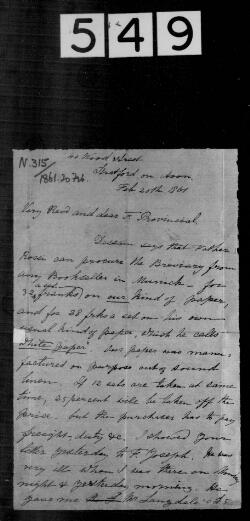 549
N.315/
1861.20 Feb.
Wood Street
Stratford on Avon.
Feb 20th 1861
Very Revd and dear F. Provincial.
says that Father
Rosa can procure the Breviary from
any Bookseller in Munich for
32 francs) on our kind of paper,
and for 28 frks a set on his own
usual kind of paper, which he calls
white paper. Our paper was manu-
factured on purpose out of sound
linen. If 12 sets are taken at same
time, 25 percent will be taken off the
price. but the purchaser has to pay
freight, duty &c. I showed your
letter yesterday to F. Joseph. He was
very ill when I was there on Monday
night & yesterday morning. He
gave me Mr Langdale's